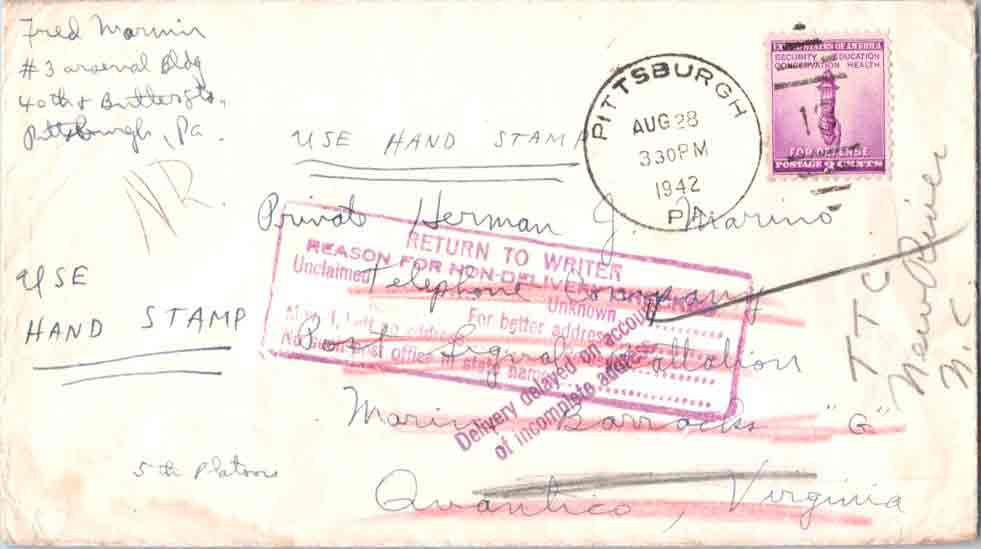 Fred
#3 arsenal Bldg
40th &
Pittsburgh, Pa.
USE HAND STAMP
PITTSBURGH
AUG 28
330PM
1942
PA
UNITED STATES OF AMERICA
SECURITY EDUCATION
CONSERVATION HEALTH
FOR DEFENSE
POSTAGE 3 CENTS
NR.
Private Herman J. Marino
Telephone Company
Post Signal Battalion
Marine Barracks "G"
Quantico, Virginia
USE
HAND STAMP
5th Platoon
RETURN TO WRITER
REASON FOR NON-DELIVERY
Unclaimed Unknown
For better address
No such post office in state named
Delivery delayed on account
of incomplete address
TTC
New River
N.C.